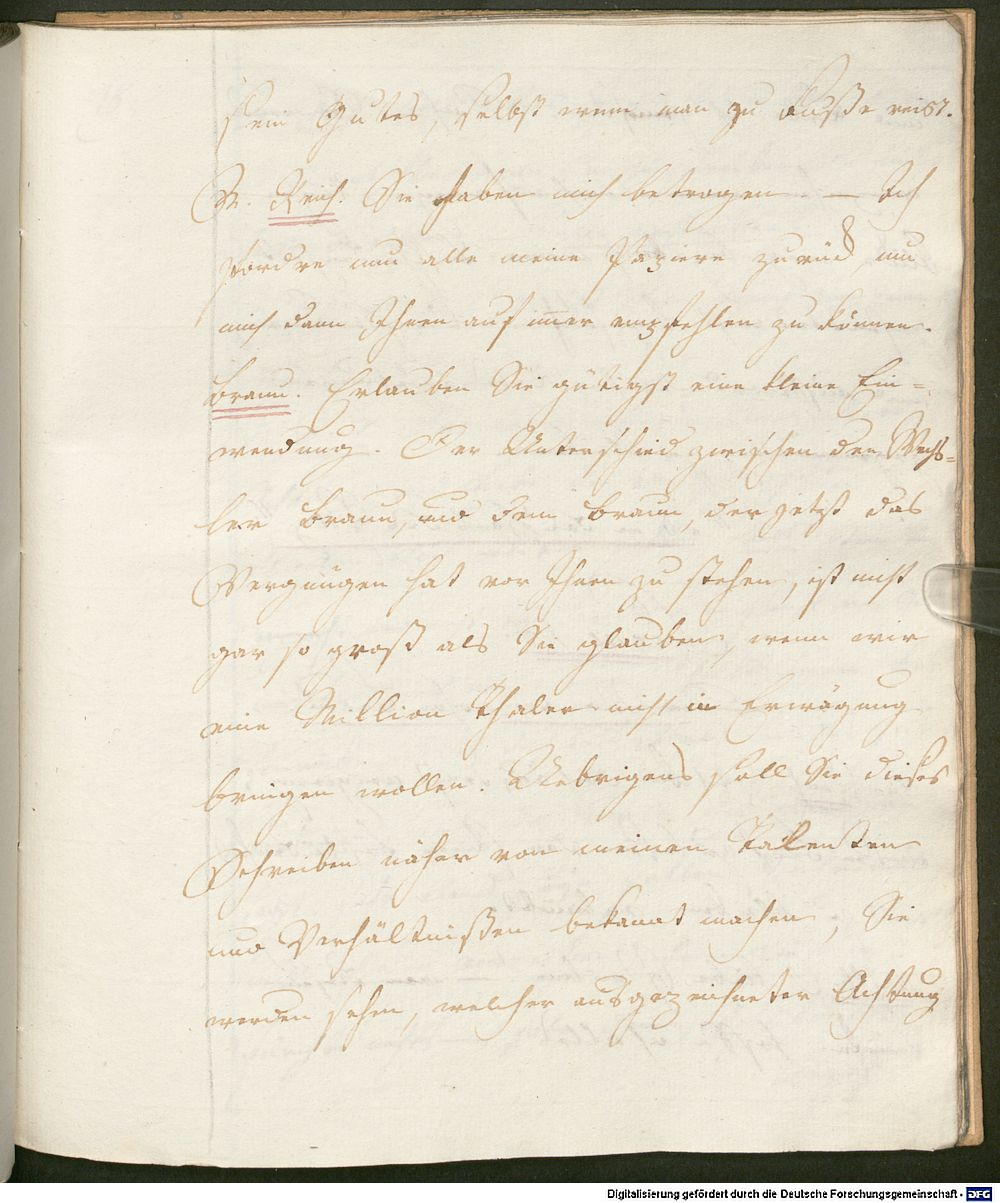 sein Gutes, selbst wenn man zu Fuße reist.
B. Reich. Sie haben mich betrogen. — Ich
fordre nun alle meine Papiere zurück, um
mich dann Ihnen auf immer empfehlen zu können.
Braun. Erlauben Sie gütigst eine kleine Ein=
wendung. Der Unterschied zwischen den Wechs=
ler Braun, und dem Braun, der jetzt das
Vergnügen hat vor Ihnen zu stehen, ist nicht
gar so groß als Sie glauben, wenn wir
eine Million Thaler nicht in Erwägung
bringen wollen. Uebrigens soll Sie dieses
Schreiben näher von meinen Talenten
und Verhältnißen bekannt machen, Sie
werden sehen, welcher ausgezeichneter Achtung
Digitalisierung gefördert durch die Deutsche Forschungsgemeinschaft - DFG